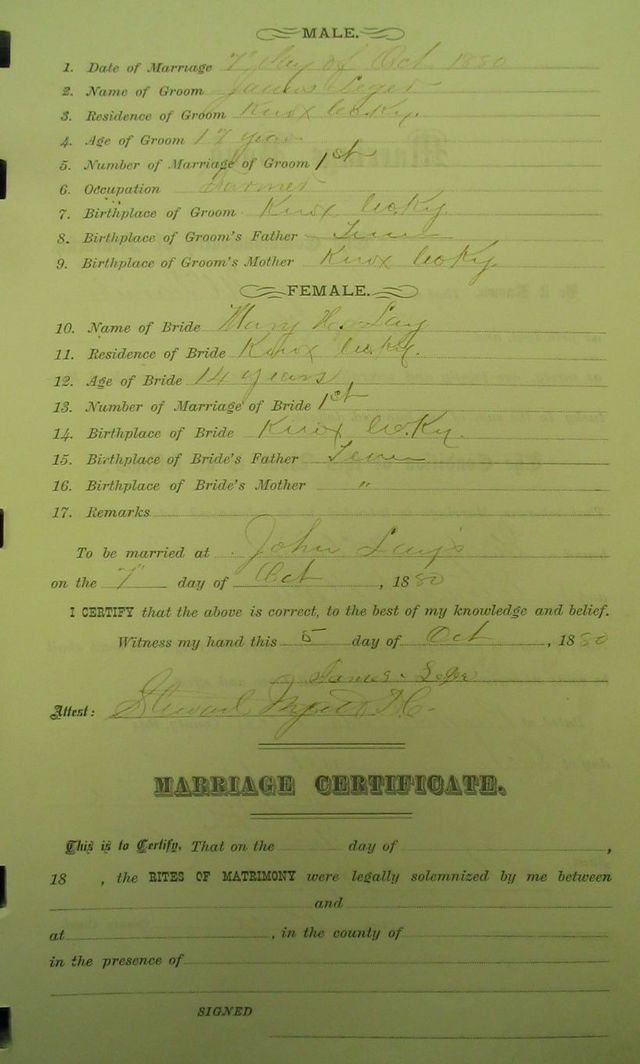 MALE.
1. Date of Marriage 7" day of Oct 1880
2. Name of Groom James Leger
3. Residence of Groom Knox Co Ky.
4. Age of Groom 17 years
5. Number of Marriage of Groom 1st
6. Occupation Farmer
7. Birthplace of Groom Knox Co. Ky.
8. Birthplace of Groom's Father Tenn
9. Birthplace of Groom's Mother Knox Co Ky.
FEMALE.
10. Name of Bride Mary H. Lay
11. Residence of Bride Knox Co. Ky.
12. Age of Bride 14 years
13. Number of Marriage of Bride 1st
14. Birthplace of Bride Knox Co. Ky.
15. Birthplace of Bride's Father Tenn
16. Birthplace of Bride's Mother "
17. Remarks
To be married at John Lay's
on the 7" day of Oct, 1880
I CERTIFY that the above is correct, to the best of my knowledge and belief.
Witness my hand this 5 day of Oct, 1880
James
Attest: D.C.
MARRIAGE CERTIFICATE.
This is to Certify, That on the day of ,
18 , the RITES OF MATRIMONY were legally solemnized by me between
and
at , in the county of
in the presence of
SIGNED